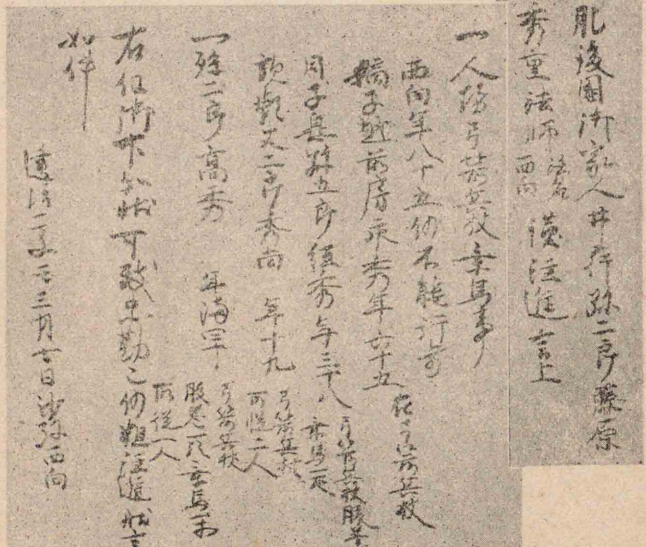 肥後國御家人井芹弥二郎藤原
秀重法師法名西向謹注進言上
一人勢弓箭兵杖乗馬事
西向年八十五仍不能行歩
嫡子越前房永秀年六十五 在弓箭兵杖
同子息弥五郎経秀年三十八 弓箭兵杖腹巻
乗馬一疋
親類又二郎秀尚 年十九 弓箭兵杖
所従二人
一孫二郎高秀 年満四十 弓箭兵杖
腹巻一領乗馬一疋
所従一人
右任御下知状可致忠勤之仍粗注進状言
如件
建治二年三月七日沙弥西向